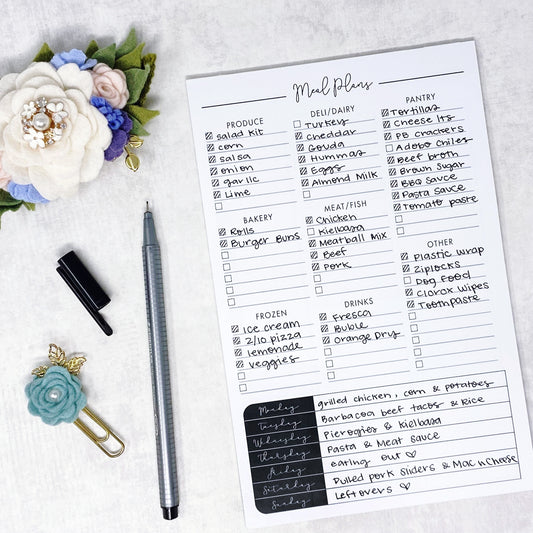 Meal Plans
PRODUCE
Salad Kit
corn
salsa
onion
garlic
Lime
DELI/DAIRY
Turkey
Cheddar
Gouda
Hummas
Eggs
Almond Milk
PANTRY
Tortillas
Cheese Its
PB crackers
Adobo Chiles
Beef broth
Brown Sugar
BBQ Sauce
Pasta Sauce
Tomato paste
BAKERY
Rolls
Burger Buns
MEAT/FISH
Chicken
Kielbasa
Meatball Mix
Beef
Pork
OTHER
Plastic wrap
Ziplocks
Dog Food
Clorox Wipes
Toothpaste
FROZEN
Ice cream
2/10 pizza
lemonade
veggies
DRINKS
Fresca
Buble
Orange Dry
Monday grilled chicken, corn & potatoes
Tuesday Barbacoa beef tacos & Rice
Wednesday Pierogies & Kielbasa
Thursday Pasta & Meat Sauce
Friday eating out ♡
Saturday Pulled pork Sliders & Mac n Cheese
Sunday Leftovers ♡